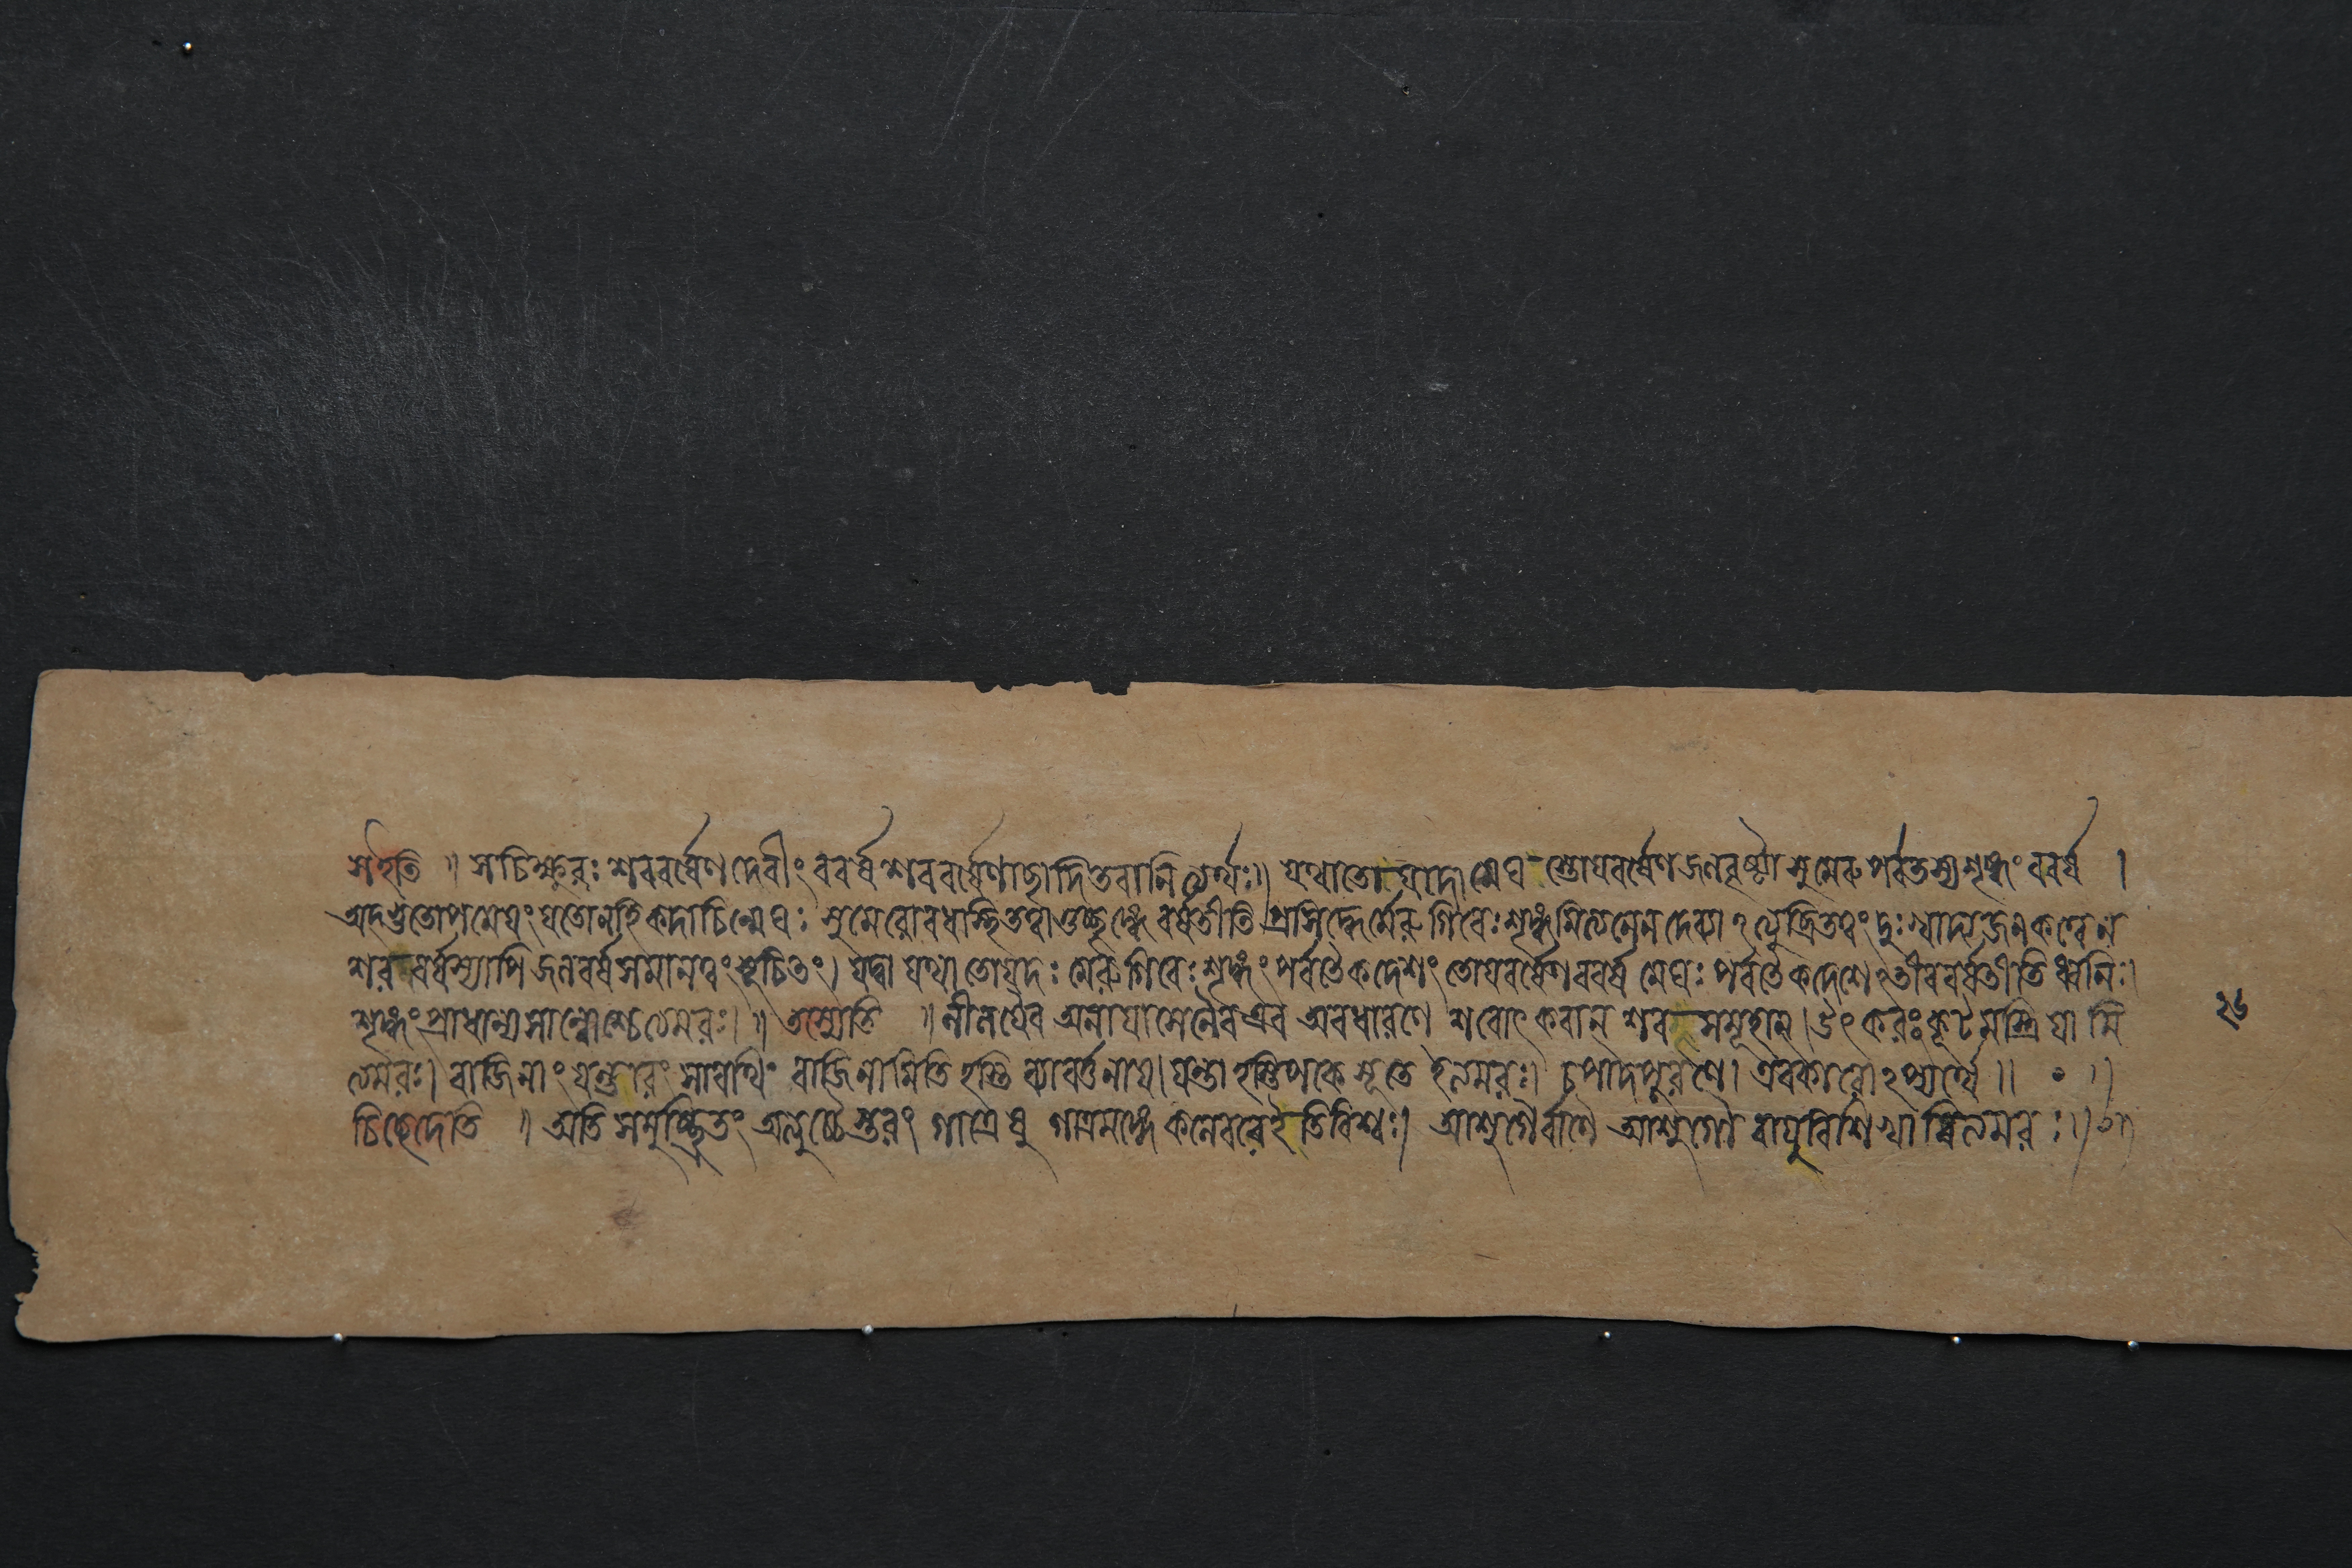 সইতি ॥ সচিক্ষুরঃ শরবর্ষেণ দেবীং ববর্ষ শরবর্ষেণাচ্ছাদিতবানিত্যর্থঃ॥ যথাতোয়দো মেঘস্তোয়বর্ষেণ জলবৃষ্ট্যা সুমেরুপর্বতস্য শৃঙ্গং ববর্ষ ।
অদ্ভুতোপমেয়ং যতোনহি কদাচিন্মেঘঃ সুমেরোরধঃস্থিতত্বাত্তচ্ছৃঙ্গে বর্ষতীতি প্রসিদ্ধে মেরুগিরেঃ শৃঙ্গমিত্যনেন দেব্যা দুঃখাদ্যজনকত্বেন
শরবর্ষস্যাপি জলবর্ষসমানত্বং সূচিতং। যদ্বা যথা তোয়দঃ মেরুগিরেঃ শৃঙ্গং পর্বতৈকদেশং তোয়বর্ষেণ ববর্ষ মেঘঃ পর্বতৈকদেশে ঽতীববর্ষতীতি ধ্বনিঃ।
শৃঙ্গং প্রাধান্যসান্বোশ্চেত্যমরঃ। ॥ তস্যেতি ॥ লীলয়ৈব অনায়াসেনৈব এব অবধারণে শরোৎকরান্ শরসমূহান্। উৎকরঃ কূটমস্ত্রিয়ামি
ত্যমরঃ। বাজিনাং যন্তারং সারথিং বাজিনামিতি হস্তি ব্যাবর্তনায়। যন্তা হস্তিপকে সূতে ইত্যমরঃ। চপাদপূরণে। এবকারোঽপ্যর্থে ॥ • ॥
চিচ্ছেদেতি ॥ অতিসমুচ্ছ্রিতং অত্যুচ্চৈস্তরং গাত্রেষু গাত্রমঙ্গে কলেবরে ইতিবিশ্বঃ। আশুগৈর্বাণৈঃ আশুগৌ বায়ুবিশিখাবিত্যমরঃ॥
২৬